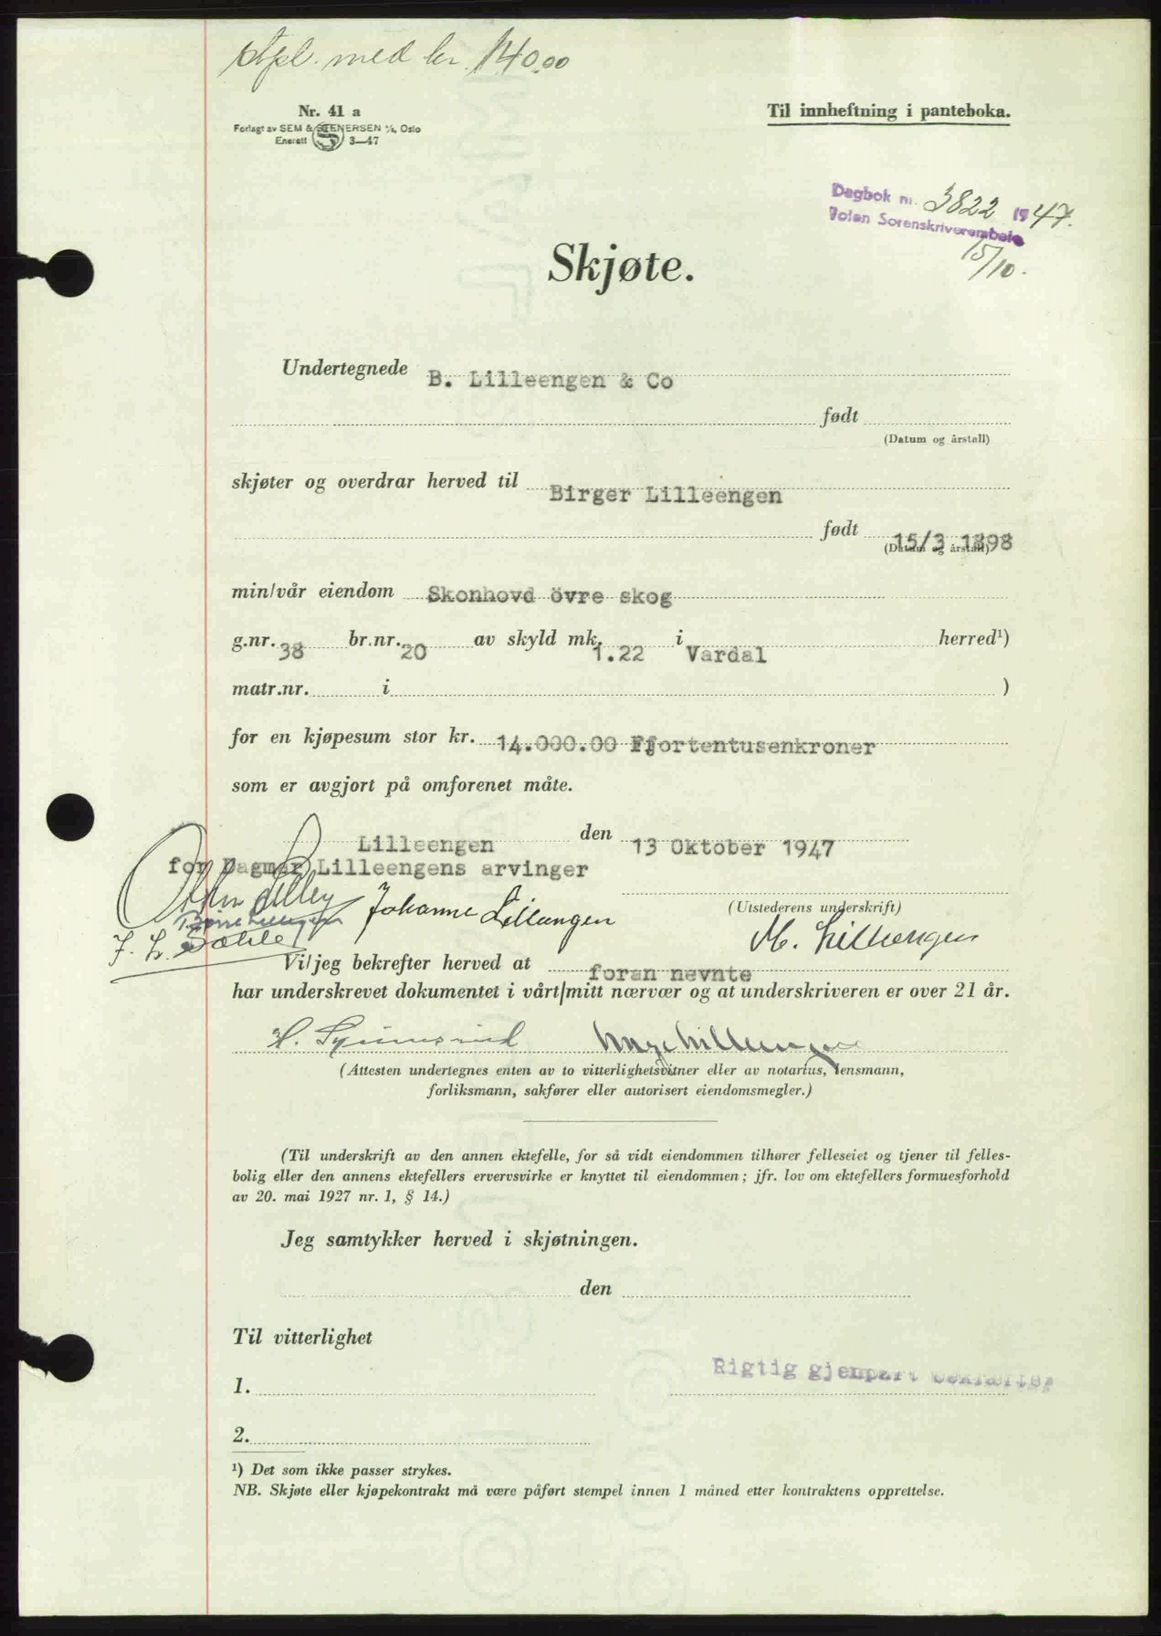 stpl. med kr. 140.00
Nr. 41 a
Forlagt av SEM & STENERSEN A/S, Oslo
Enerett 3—47
Til innheftning i panteboka.
Dagbok nr. 3822 1947.
Toten Sorenskriverembete
15/10.
Skjøte.
Undertegnede B. Lilleengen & Co
født
(Datum og årstall)
skjøter og overdrar herved til Birger Lilleengen
født 15/3 1898
(Datum og årstall)
min/vår eiendom Skonhovd övre skog
g.nr. 38 br.nr. 20 av skyld mk. 1.22 i Vardal herred¹)
matr.nr. i )
for en kjøpesum stor kr. 14.000.00 Fjortentusenkroner
som er avgjort på omforenet måte.
Lilleengen den 13 Oktober 1947
for Dagmar Lilleengens arvinger
(Utstederens underskrift)
Johanne Lilleengen
M. Lilleengen
Vi/jeg bekrefter herved at foran nevnte
har underskrevet dokumentet i vårt/mitt nærvær og at underskriveren er over 21 år.
H.
Lilleengen
(Attesten undertegnes enten av to vitterlighetsvitner eller av notarius, lensmann,
forliksmann, sakfører eller autorisert eiendomsmegler.)
(Til underskrift av den annen ektefelle, for så vidt eiendommen tilhører felleseiet og tjener til felles-
bolig eller den annens ektefellers ervervsvirke er knyttet til eiendommen; jfr. lov om ektefellers formuesforhold
av 20. mai 1927 nr. 1, § 14.)
Jeg samtykker herved i skjøtningen.
den
Til vitterlighet
Rigtig gjenpart bekræftes
1.
2.
¹) Det som ikke passer strykes.
NB. Skjøte eller kjøpekontrakt må være påført stempel innen 1 måned etter kontraktens opprettelse.